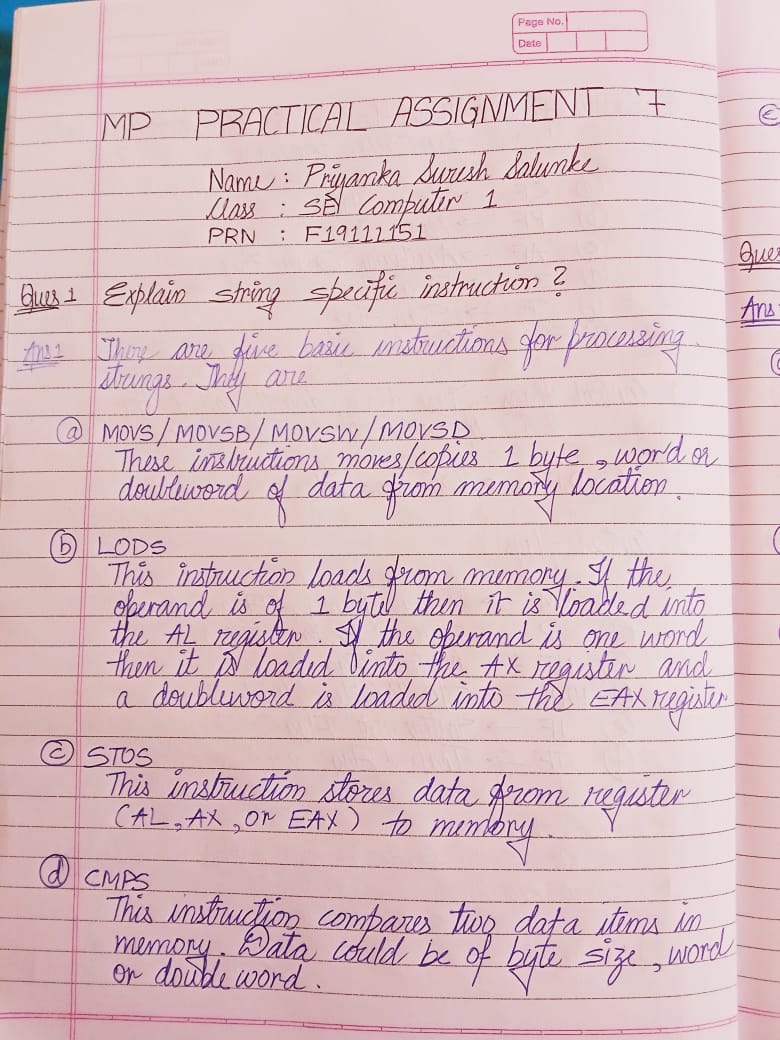 Page No.
Date
MP PRACTICAL ASSIGNMENT 7
Name : Priyanka Suresh Salunke
Class : SE Computer 1
PRN : F19111151
Ques 1 Explain string specific instruction ?
Ans 1 There are five basic instructions for processing
strings. They are
(a) MOVS/MOVSB/MOVSW/MOVSD
These instructions moves/copies 1 byte, word or
doubleword of data from memory location.
(b) LODS
This instruction loads from memory. If the
operand is of 1 byte then it is loaded into
the AL register. If the operand is one word
then it is loaded into the AX register and
a doubleword is loaded into the EAX register
(c) STOS
This instruction stores data from register
(AL, AX, or EAX) to memory.
(d) CMPS
This instruction compares two data items in
memory. Data could be of byte size, word
or doubleword.
Ques
Ans